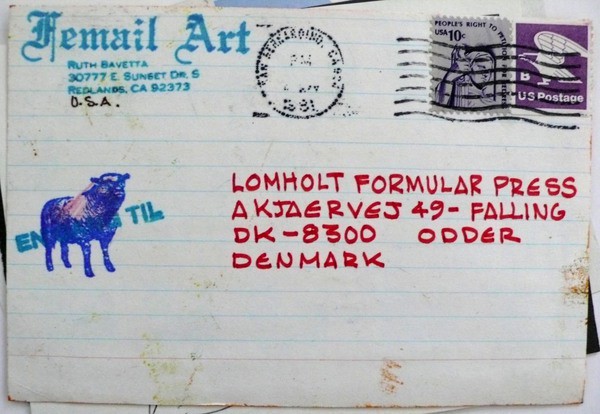 Femail Art
RUTH BAVETTA
30777 E. SUNSET DR. S
REDLANDS, CA 92373
U.S.A.
SAN BERNARDINO, CA
PM
1981
PEOPLE'S RIGHT TO
USA 10c
B
US Postage
EN TIL
LOMHOLT FORMULAR PRESS
AKJAERVEJ 49- FALLING
DK-8300 ODDER
DENMARK